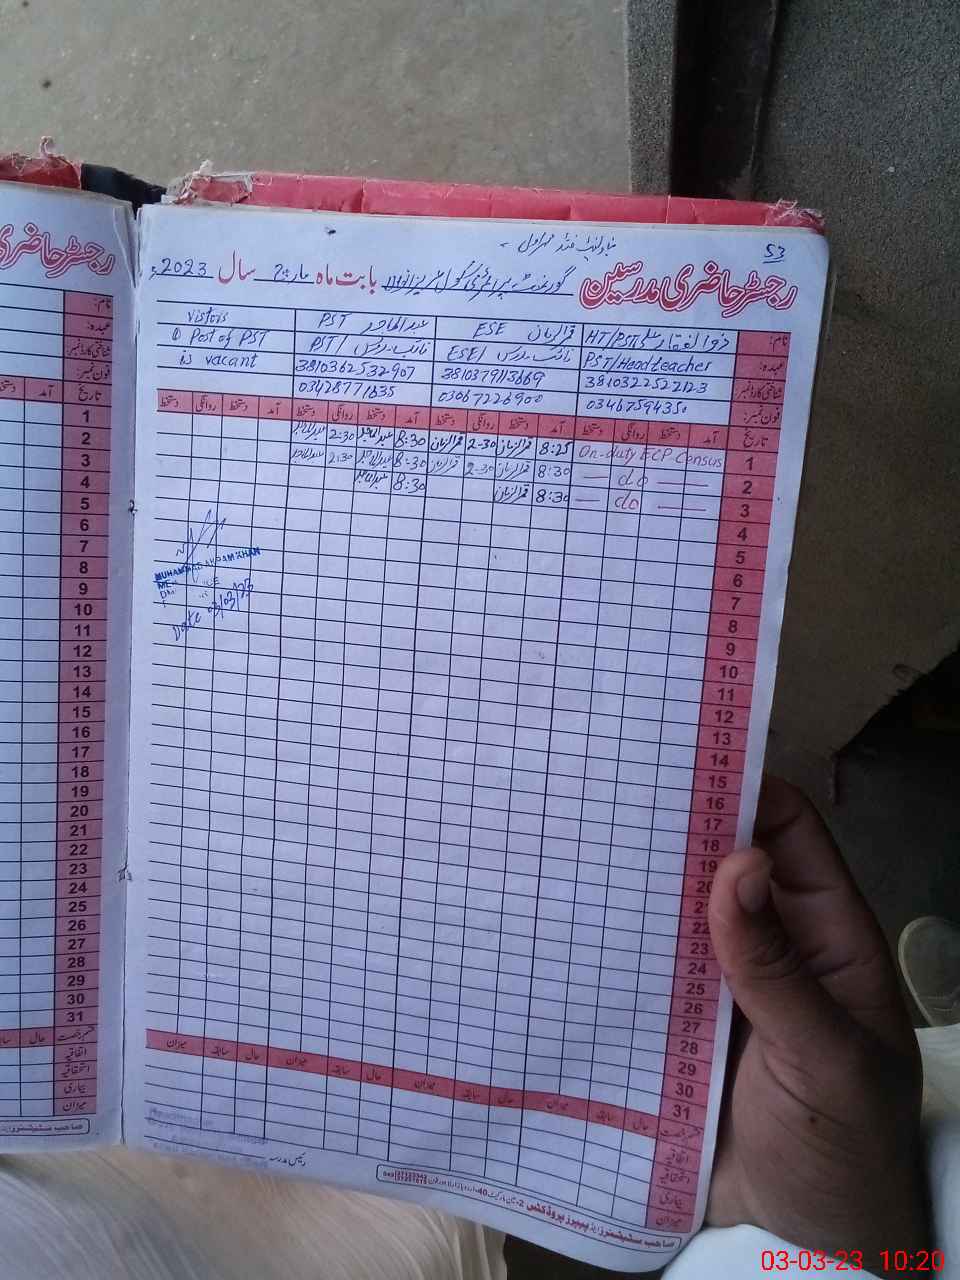 53
رجسٹر حاضری مدرسین گورنمنٹ پرائمری سکول بابت ماہ مارچ سال 2023ء
رجسٹر حاضری
نام:
عہدہ:
شناختی کارڈ نمبر:
فون نمبر:
HT/PST
PST/Headteacher
3810322522123
03467594350
قمرالزمان ESE
نائب مدرس /ESE
3810379113669
03067226900
عبدالماجد PST
نائب مدرس /PST
3810362532907
03428777635
vistors
① Post of PST
is vacant
تاریخ آمد دستخط روانگی دستخط آمد دستخط روانگی دستخط آمد دستخط روانگی دستخط آمد دستخط روانگی دستخط
1 On-duty ECP Census 8:25 قمرالزمان 2-30 قمرالزمان 8:30 عبدالماجد 2:30 عبدالماجد
2 — do — 8:30 قمرالزمان 2-30 قمرالزمان 8-30 عبدالماجد 2:30 عبدالماجد
3 — do — 8:30 قمرالزمان 8:30 عبدالماجد
4
5
6
7
8
9
10
11
12
13
14
15
16
17
18
19
20
21
22
23
24
25
26
27
28
29
30
31
MUHAMMAD AKRAM KHAN
Date 03/03/23
قسم رخصت حال سابقہ میزان حال سابقہ میزان حال سابقہ میزان حال سابقہ میزان
اتفاقیہ
استحقاقیہ
بیماری
میزان
رئیس مدرسہ
صاحب سٹیشنرز اینڈ پیپرز پروڈکٹس
نام:
عہدہ:
شناختی کارڈ نمبر:
فون نمبر:
تاریخ آمد دستخط
1
2
3
4
5
6
7
8
9
10
11
12
13
14
15
16
17
18
19
20
21
22
23
24
25
26
27
28
29
30
31
قسم رخصت حال
اتفاقیہ
استحقاقیہ
بیماری
میزان
صاحب سٹیشنرز اینڈ
03-03-23 10:20